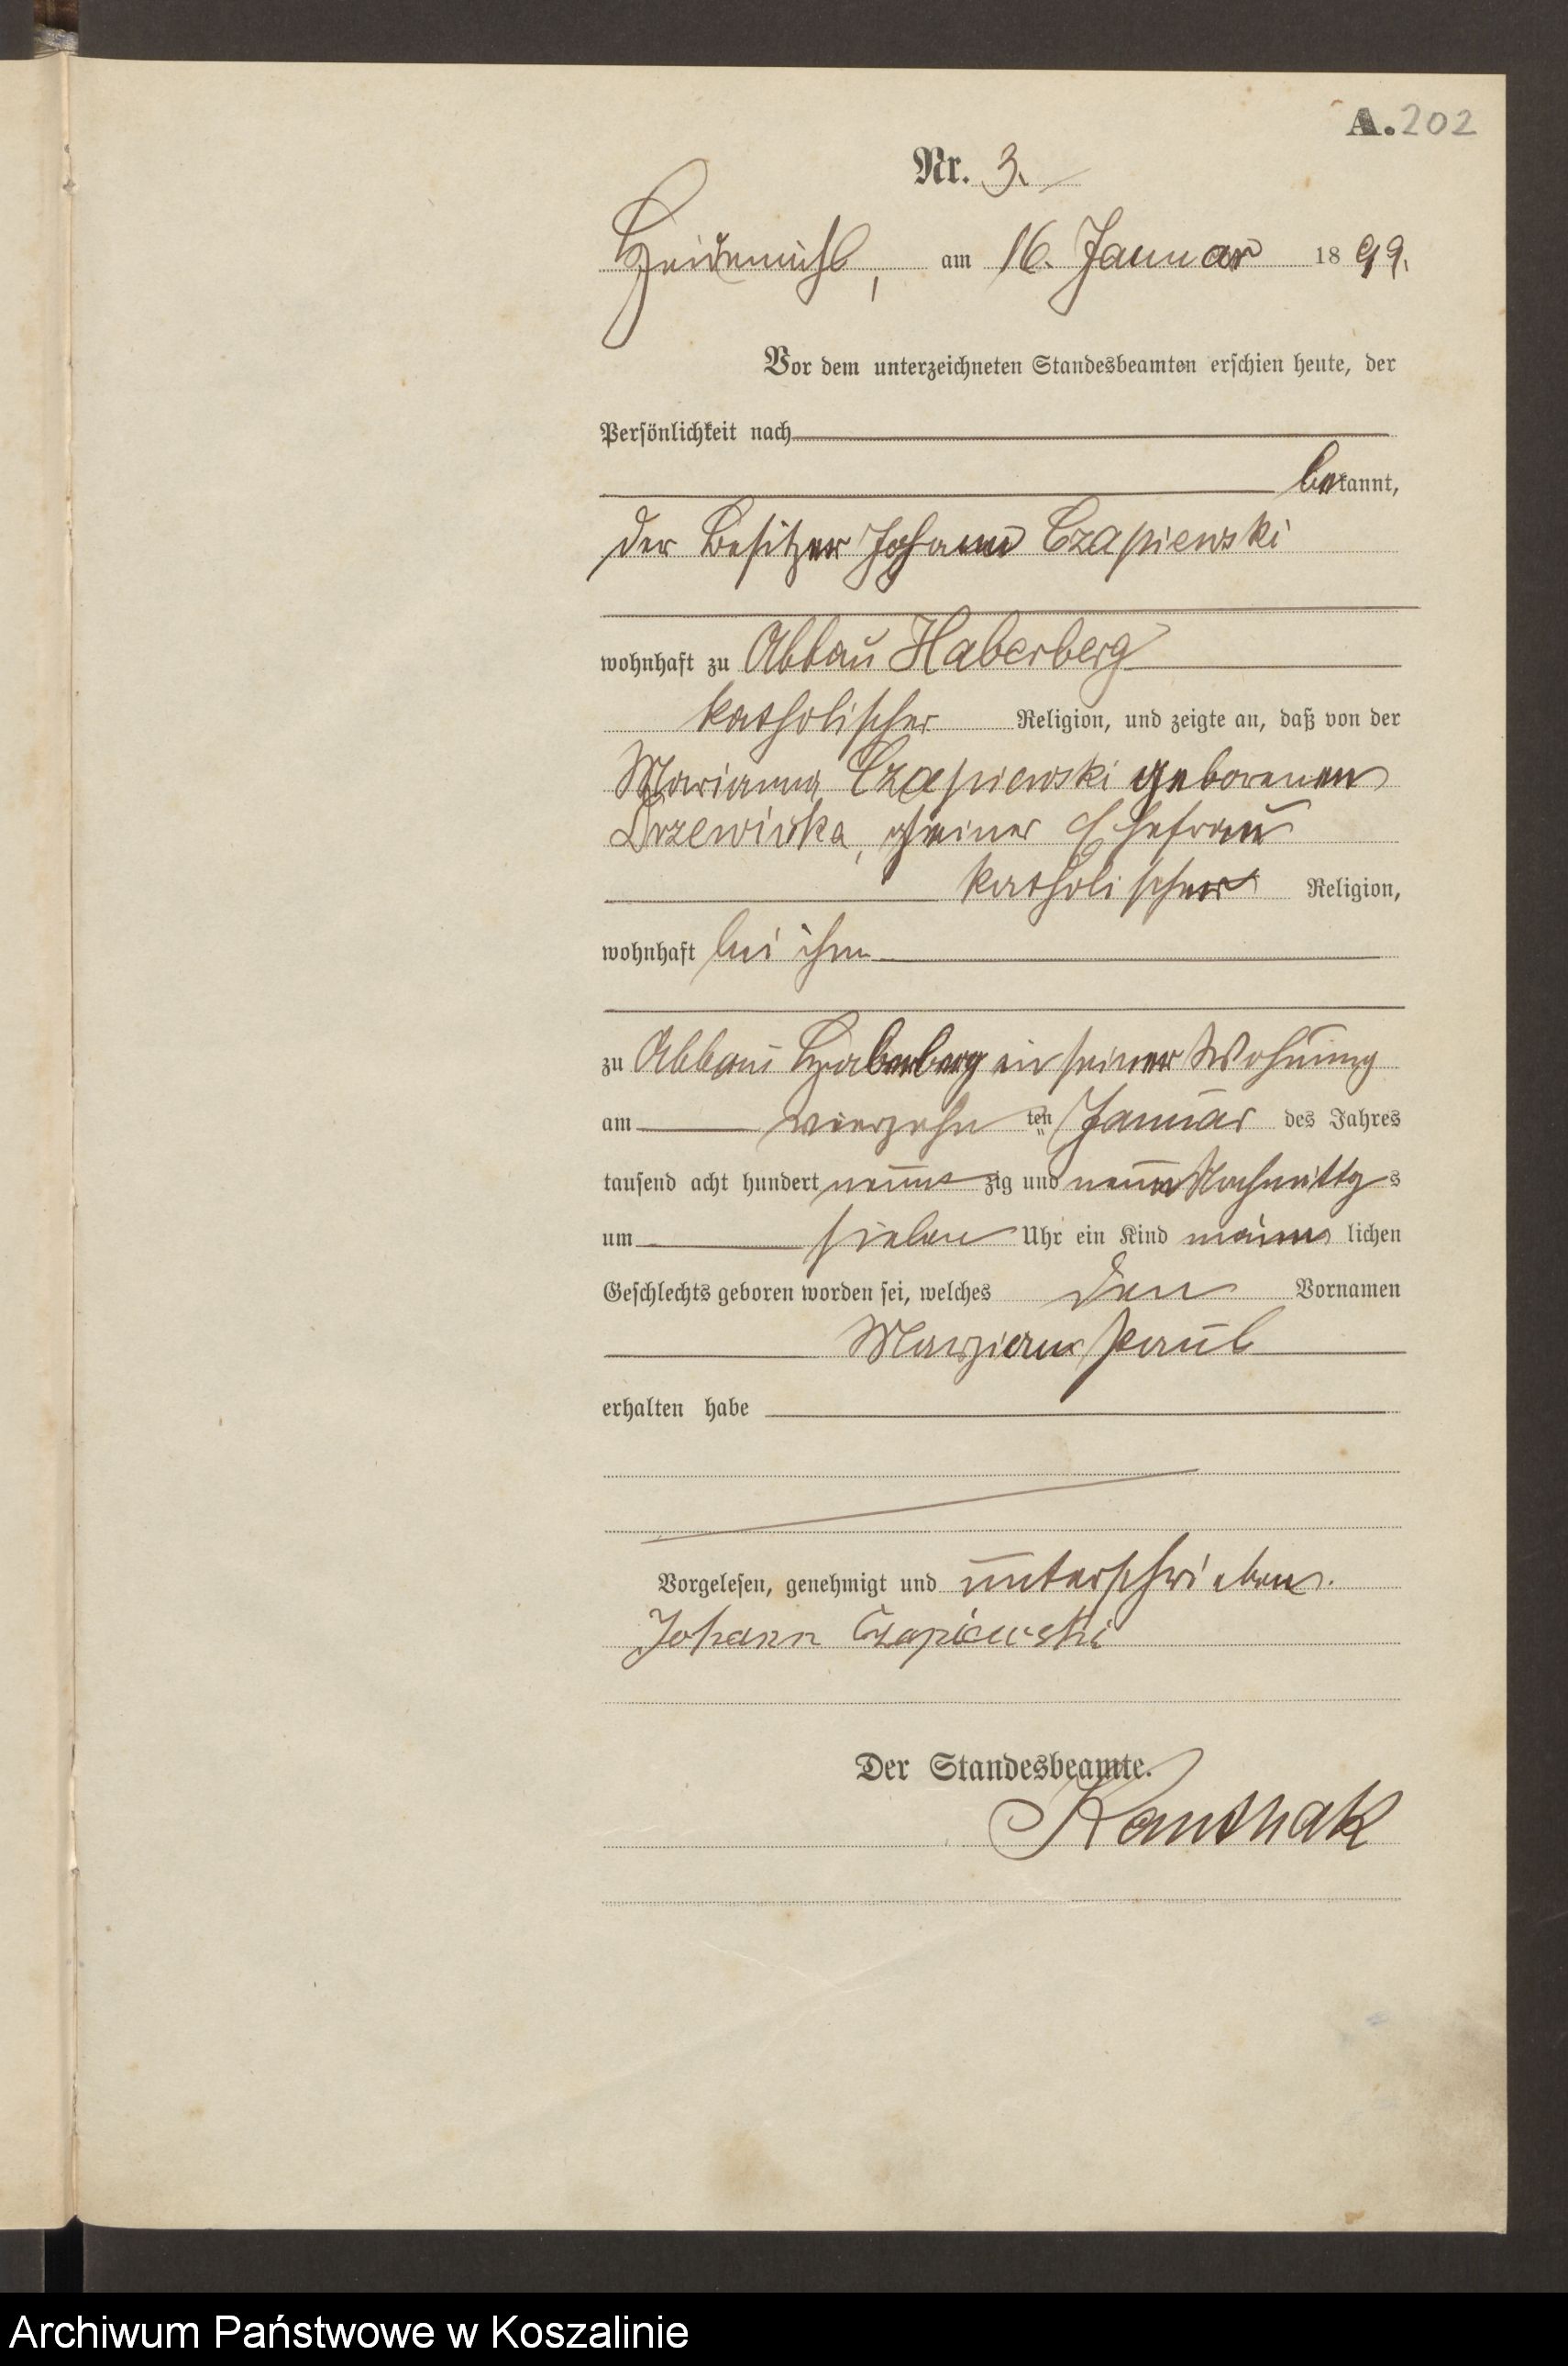 A. 202
Nr. 3.
Heidemühl, am 16. Januar 1899.
Vor dem unterzeichneten Standesbeamten erschien heute, der
Persönlichkeit nach
bekannt,
der Besitzer Johann Czapiewski
wohnhaft zu Abbau Haberberg
katholischer Religion, und zeigte an, daß von der
Marianna Czapiewski geborenen
seiner Ehefrau
katholischer Religion,
wohnhaft bei ihm
zu Abbau Haberberg in seiner Wohnung
am vierzehn ten Januar des Jahres
tausend acht hundert neunzig und neun Nachmittgs
um sieben Uhr ein Kind männlichen
Geschlechts geboren worden sei, welches den Vornamen
Marzian Paul
erhalten habe
Vorgelesen, genehmigt und unterschrieben.
Johann Czapiewski
Der Standesbeamte.
Kanthak
Archiwum Państwowe w Koszalinie